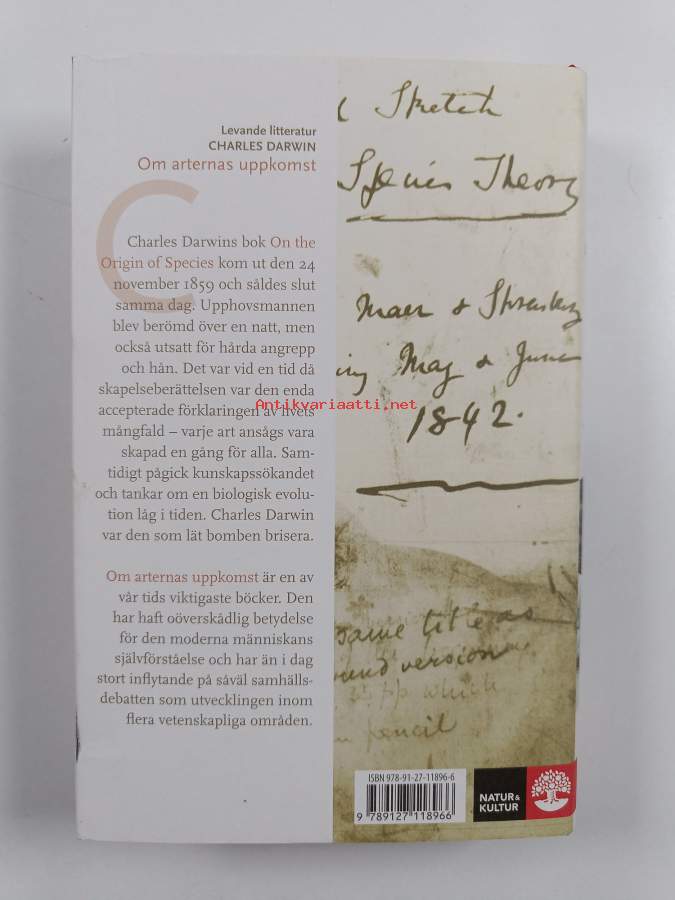 Levande litteratur
CHARLES DARWIN
Om arternas uppkomst
C
Charles Darwins bok On the
Origin of Species kom ut den 24
november 1859 och såldes slut
samma dag. Upphovsmannen
blev berömd över en natt, men
också utsatt för hårda angrepp
och hån. Det var vid en tid då
skapelseberättelsen var den enda
accepterade förklaringen av livets
mångfald – varje art ansågs vara
skapad en gång för alla. Sam-
tidigt pågick kunskapssökandet
och tankar om en biologisk evolu-
tion låg i tiden. Charles Darwin
var den som lät bomben brisera.
Om arternas uppkomst är en av
vår tids viktigaste böcker. Den
har haft oöverskådlig betydelse
för den moderna människans
självförståelse och har än i dag
stort inflytande på såväl samhälls-
debatten som utvecklingen inom
flera vetenskapliga områden.
Sketch
Species Theory
Maer &
May & June
1842.
same title as
version
which
pencil
Antikvariaatti.net
ISBN 978-91-27-11896-6
9 789127 118966
NATUR &
KULTUR